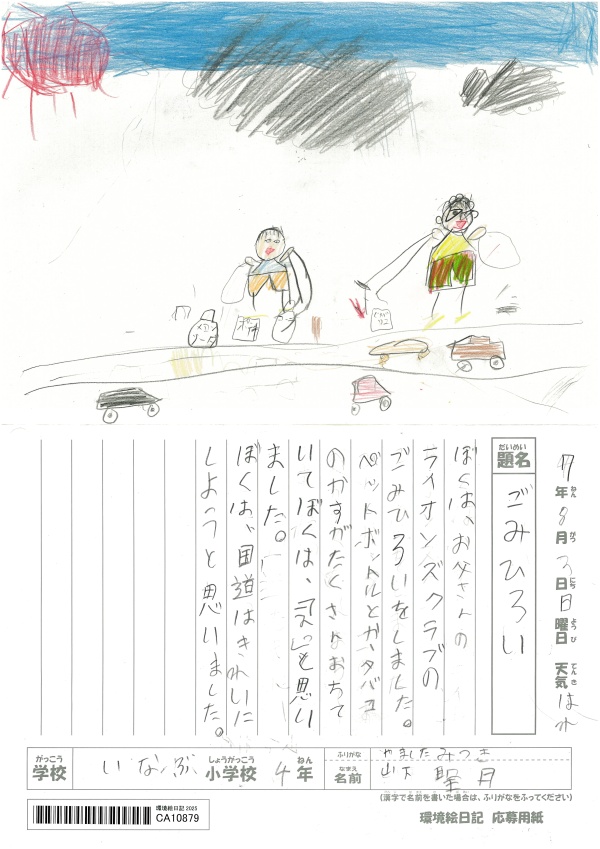 7年8月3日日曜日 天気はれ
ねん がつ にち ようび てんき
だいめい
題名 ごみひろい
ぼくは、お父さんの
ライオンズクラブの
ごみひろいをしました。
ペットボトルとか、タバコ
のかすがたくさんおちて
いてぼくは、
思い
ました。
ぼくは、国道はきれいに
しようと思いました。
がっこう しょうがっこう ねん
学校 いなぶ 小学校 4年
ふりがな やました みつき
なまえ
名前 山下 月
(漢字で名前を書いた場合は、ふりがなをふってください)
環境絵日記 2025
CA10879
環境絵日記 応募用紙